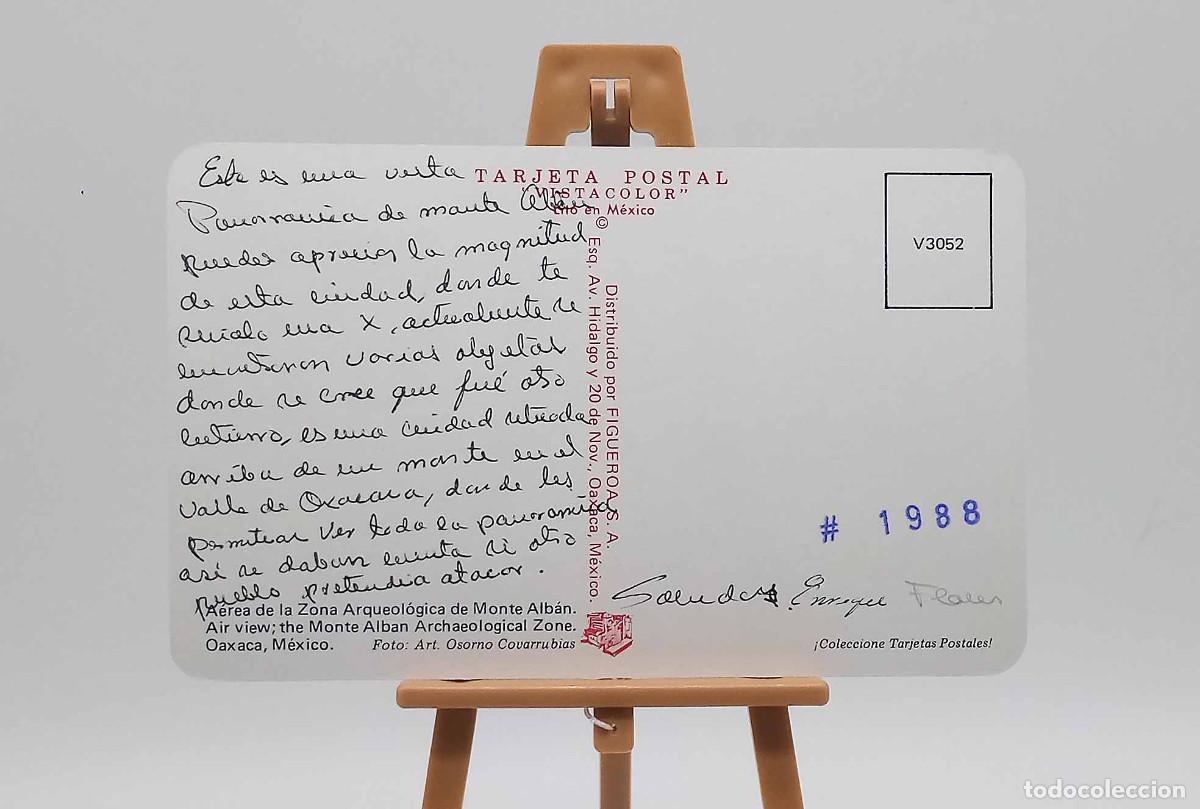 Esta es una vista
Panoramica de monte Alban
puedes apreciar la magnitud
de esta ciudad, donde te
señalo una X, actualmente se
encuentran varios objetos
donde se cree que fué otro
entierro, es una ciudad situada
arriba de un monte en el
Valle de Oaxaca, donde les
permitian ver toda la panoramica
así se daban cuenta si otro
pueblo pretendia atacar.
Aérea de la Zona Arqueológica de Monte Albán.
Air view; the Monte Alban Archaeological Zone.
Oaxaca, México. Foto: Art. Osorno Covarrubias
TARJETA POSTAL
"VISTACOLOR"
Lito en México
©
Distribuido por FIGUEROA, S. A.
Esq. Av. Hidalgo y 20 de Nov., Oaxaca, México.
V3052
# 1988
Saludos Enrique Flores
¡Coleccione Tarjetas Postales!
todocoleccion